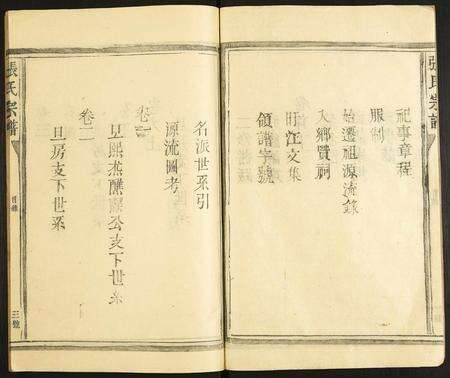 張氏宗譜
祀事章程
服制
始遷祖源流錄
入鄉賢祠
旴江文集
領譜字號
名派世系引
源流圖考
卷一
公支下世系
卷二
旦房支下世系
張氏宗譜
目錄
三